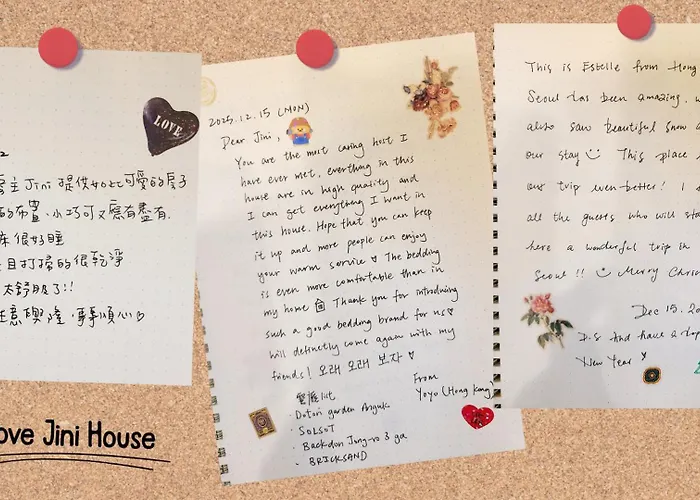 LOVE
主Jini提供如此可愛的房子
的布置,小巧可又應有盡有.
床很好睡
且打掃的很乾淨
太舒服了!!
意興隆,事事順心♡
Love Jini House
2025.12.15 (MON)
Dear Jini,
You are the most caring host I
have ever met, everthing in this
house are in high quality and
I can get everything I want in
this house. Hope that you can keep
it up and more people can enjoy
your warm service ♡ The bedding
is even more comfortable than in
my home Thank you for introducing
such a good bedding brand for us♡
Will definetly come again with my
friends! 오래 오래 보자 ♡
From
Yoyo (Hong Kong)
list
· Dotori garden Anguk
· SOLSOT
· Baekdon Jong-ro 3 ga
· BRICKSAND
This is Estelle from Hong
Seoul has been amazing,
also saw beautiful snow
our stay This place
our trip even better! I
all the guests who will
here a wonderful trip in
Seoul!! Merry
Dec 15,
P.S. And have a
New Year